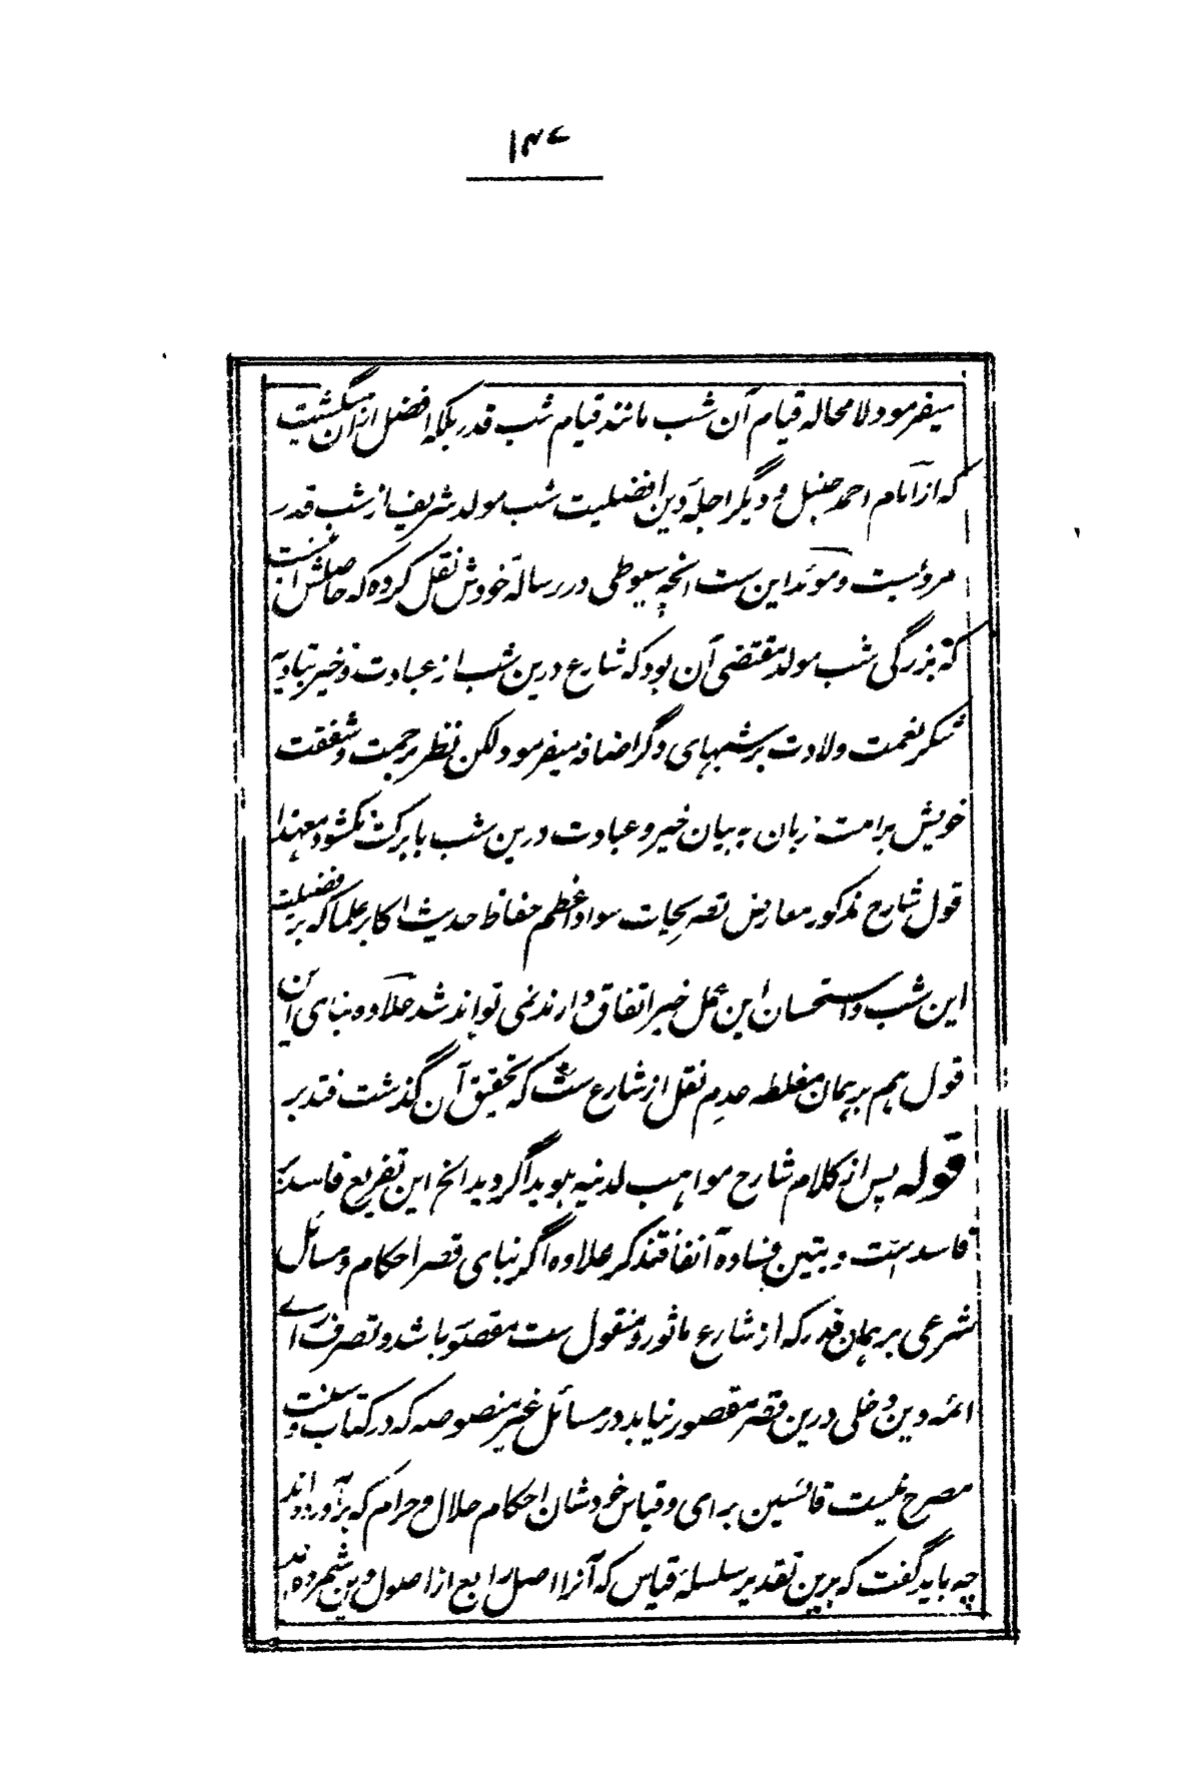 ۱۳۷
میفرمود لا محاله قیام آن شب مانند قیام شب قدر بلکه افضل ازان میگشت
که از امام احمد حنبل و دیگر اجلهٔ دین افضلیت شب مولد شریف از شب قدر
مرویست و مؤید این ست انچه سیوطی در رسالهٔ خودش نقل کرده که حاصلش آنست
که بزرگی شب مولد مقتضی آن بود که شارع درین شب از عبادت و خیر بتادیه
شکر نعمت ولادت بر شبهای دگر اضافه میفرمود لکن نظر برحمت و شفقت
خویش بر امت زبان به بیان خیر و عبادت درین شب بابرکت نکشود معهذا
قول شارح مذکور معارض تصریحات سواد اعظم حفاظ حدیث و اکابر علما که بر فضیلت
این شب و استحسان این عمل خیر اتفاق دارند نمی تواند شد علاوه بنای این
قول هم بر همان مغلطه عدم نقل از شارع ست که تحقیق آن گذشت فتدبر
قوله پس از کلام شارح مواهب لدنیه هویدا گردید الخ این تفریع فاسد بر
فاسد ست و یتبین فساده آنفا فتذکر علاوه اگر بنای قصر احکام و مسائل
شرعی بر همان قدر که از شارع ماثور و منقول ست مقصور باشد و تصرف رای
ائمه دین دخلی درین قصر مقصور نیابد در مسائل غیر منصوصه که در کتاب و سنت
مصرح نیست قائسین برای و قیاس خودشان احکام حلال و حرام که برآورده اند
چه باید گفت که برین تقدیر سلسلهٔ قیاس که آنرا اصل رابع از اصول دین شمرده اند